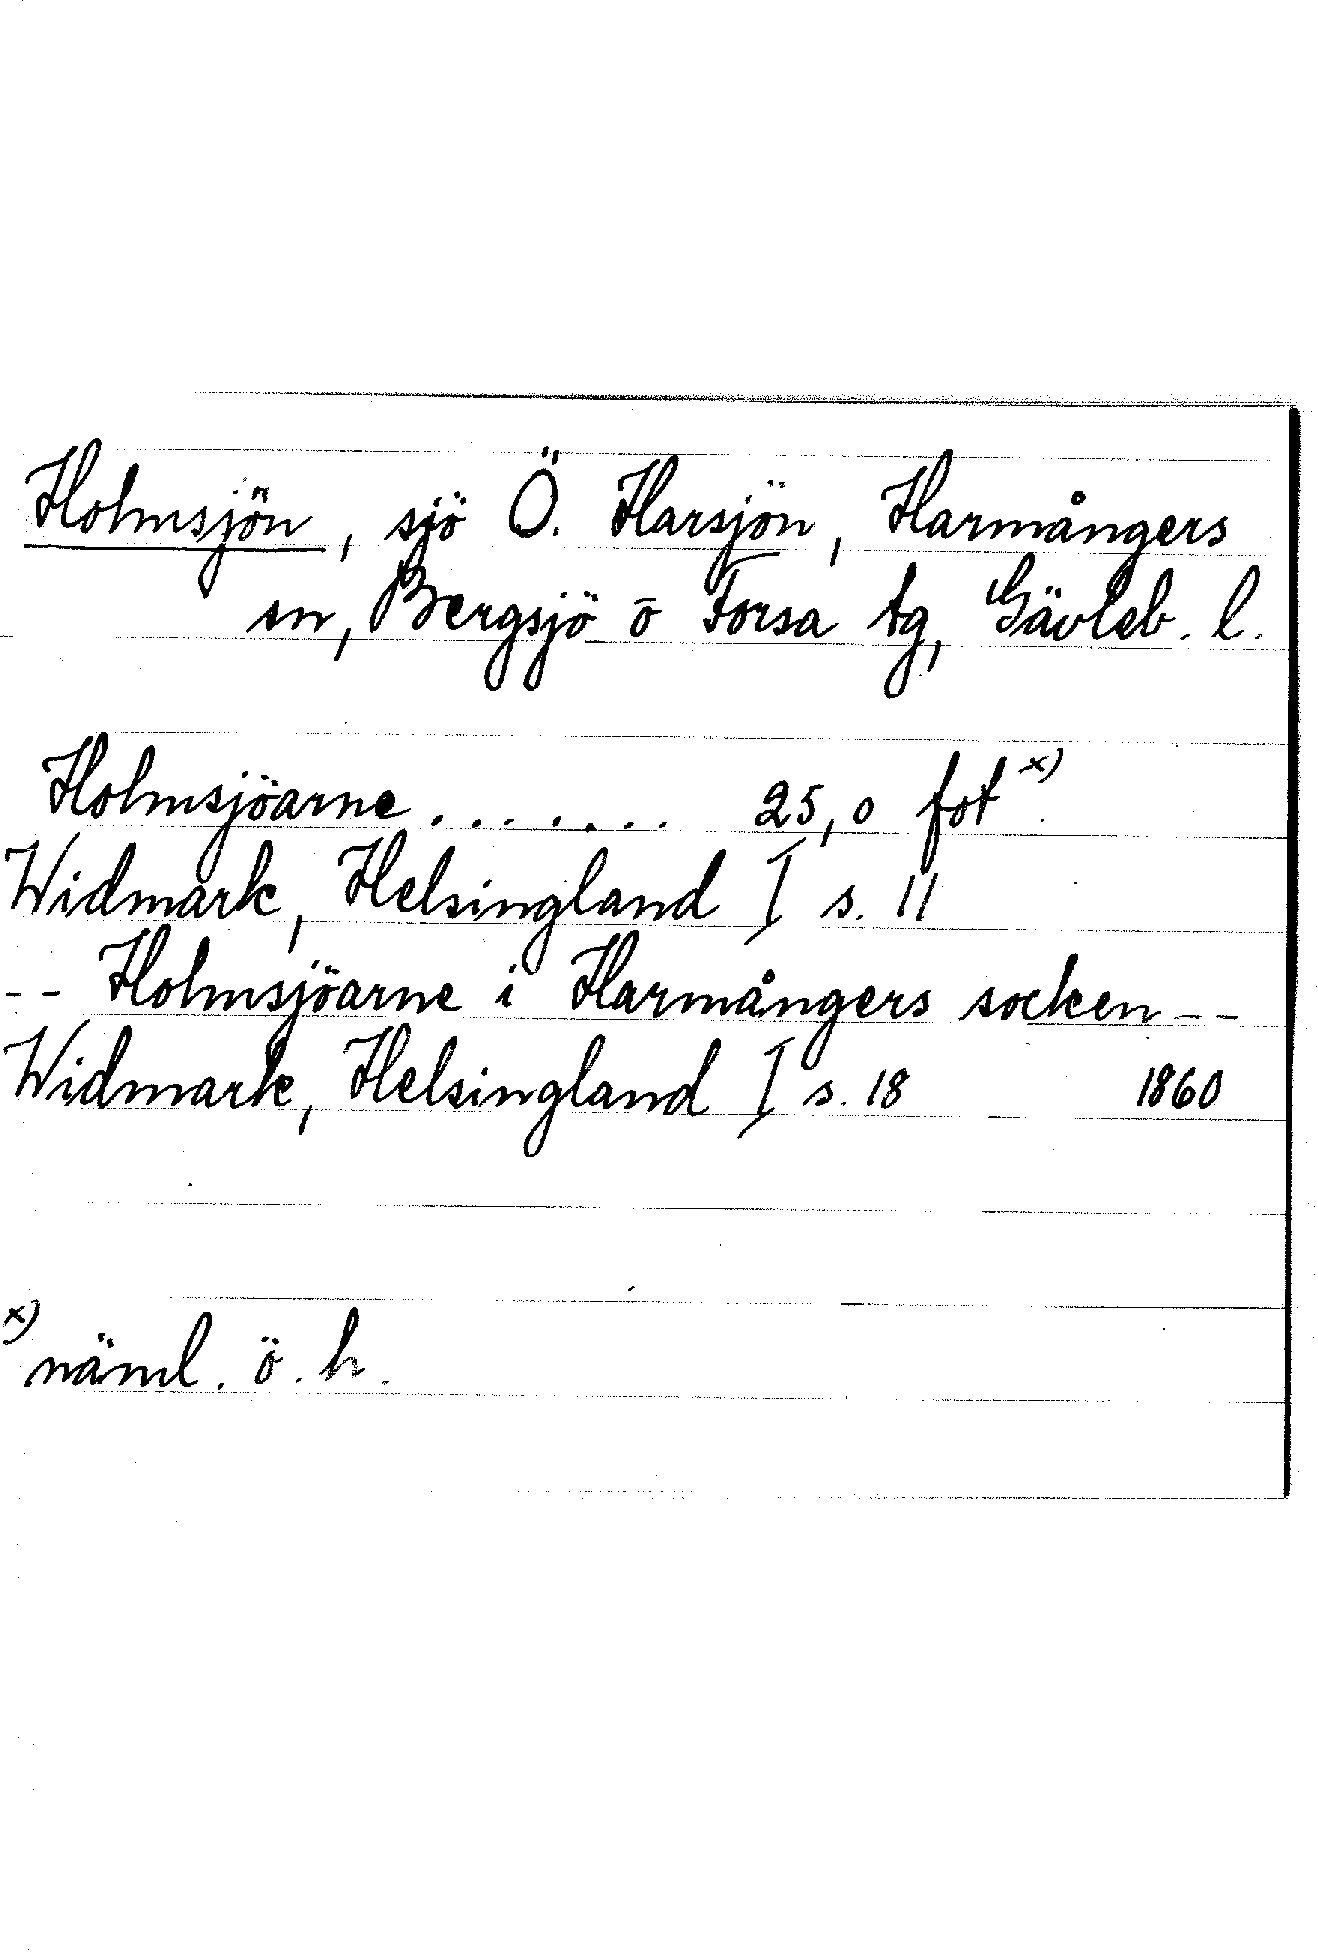 Holmsjön, sjö Ö. Harsjön, Harmångers
sn, Bergsjö o Forsa tg, Gävleb. l.
Holmsjöarne ....... 25,0 fot x)
Widmark, Helsingland I s. 11
-- Holmsjöarne i Harmångers socken --
Widmark, Helsingland I s. 18 1860
x)
näml. ö. h.